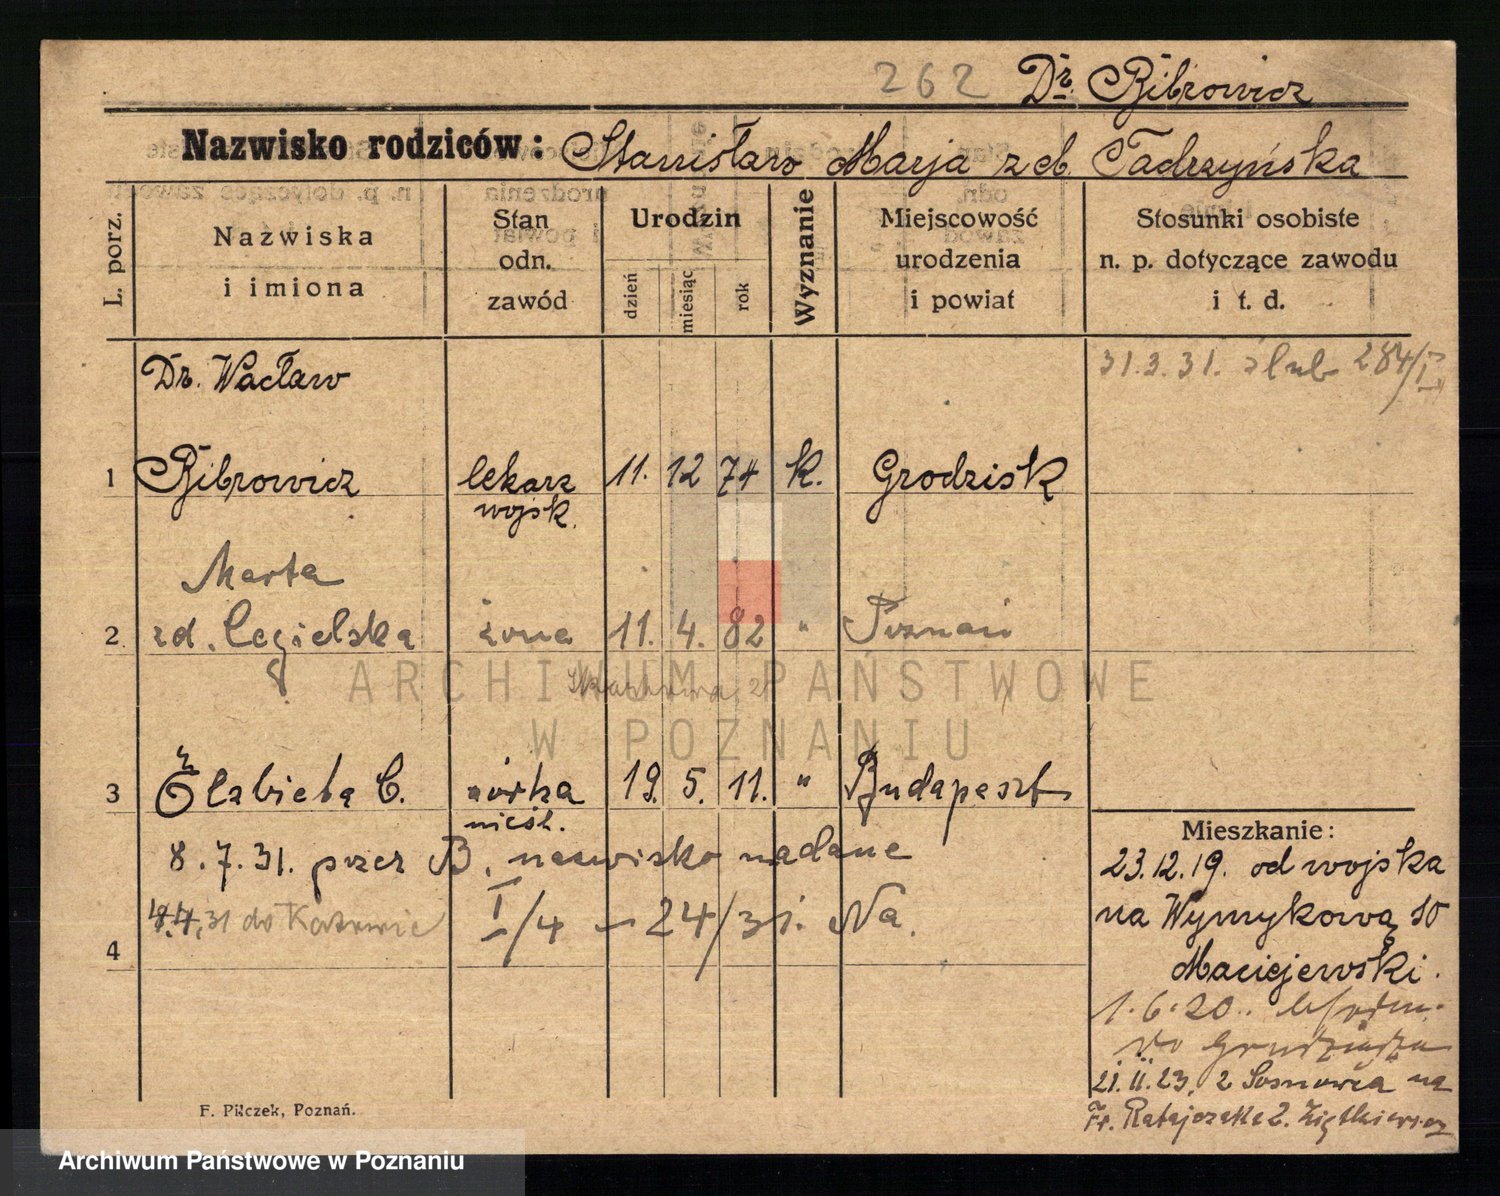 262 Dr. Bibrowicz
Nazwisko rodziców: Stanisław Marja z d. Tadrzyńska
L. porz.
Nazwiska
i imiona
Stan
odn.
zawód
Urodzin
dzień
miesiąc
rok
Wyznanie
Miejscowość
urodzenia
i powiat
Stosunki osobiste
n. p. dotyczące zawodu
i t. d.
31.3.31. ślub 284/I
Dr. Wacław
1 Bibrowicz lekarz 11. 12 74 k. Grodzisk
wojsk.
Marta
2 zd. Cegielska żona 11. 4. 82 " Poznań
ARCHIWUM PAŃSTWOWE
W POZNANIU
3 Elżbieta C. córka 19. 5. 11. " Budapeszt
nieśl.
8.7.31. przez B. nazwisko nadane
31 do Katowic I/4 - 24/31. Na.
4
Mieszkanie:
23.12.19. od wojska
na Wymykową 10
Maciejewski.
1.6.20.
do Grudziądza
21.11.23. z Sosnowca na
Fr. Ratajczaka 2. Ziętkiewicz
F. Pilczek, Poznań.
Archiwum Państwowe w Poznaniu